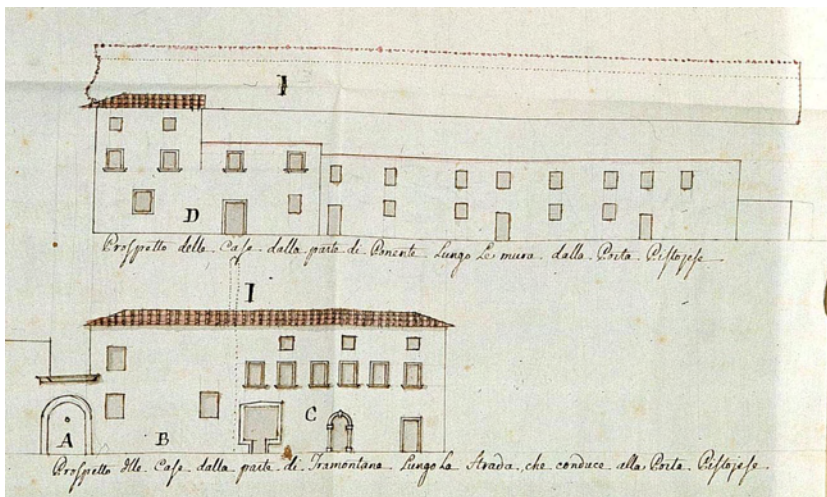 I
D
Prospetto delle Case dalla parte di Ponente Lungo Le mura dalla Porta Pistojese
I
C
A
B
Prospetto dlle Case dalla parte di Tramontana Lungo La Strada, che conduce alla Porta Pistojese.